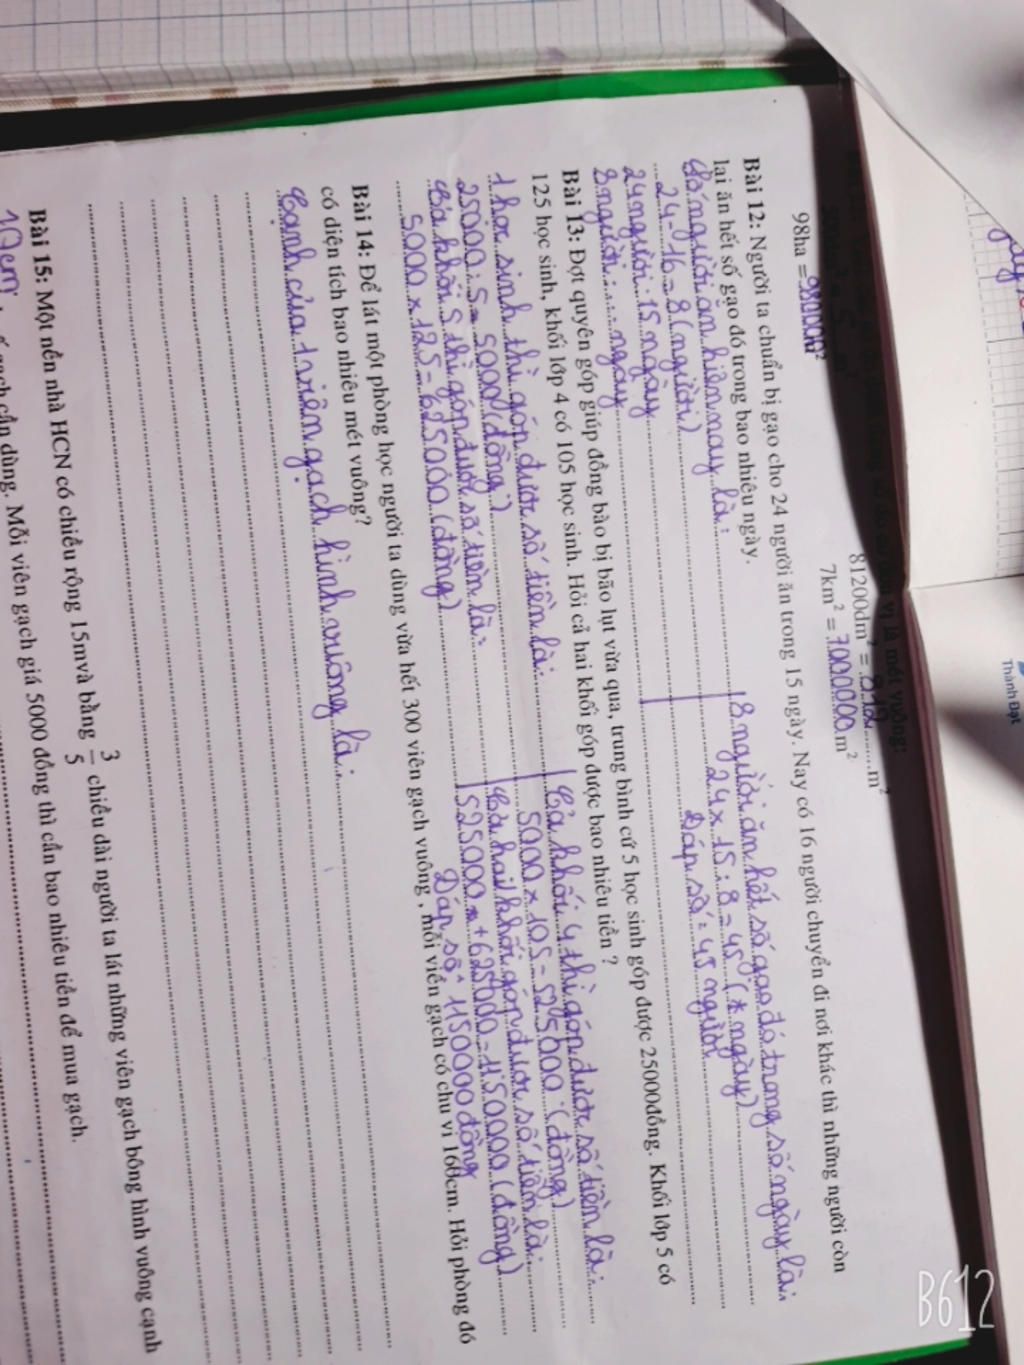 81200dm² = 812 m²
98ha = 980000m²
7km² = 7000000 m²
Bài 12: Người ta chuẩn bị gạo cho 24 người ăn trong 15 ngày. Nay có 16 người chuyển đi nơi khác thì những người còn
lại ăn hết số gạo đó trong bao nhiêu ngày.
Số người ăn hiện nay là:
24 - 16 = 8 (người)
24 người: 15 ngày
8 người: ... ngày
8 người ăn hết số gạo đó trong số ngày là:
24 x 15 : 8 = 45 (ngày)
Đáp số: 45 người
Bài 13: Đợt quyên góp giúp đồng bào bị bão lụt vừa qua, trung bình cứ 5 học sinh góp được 25000đồng. Khối lớp 5 có
125 học sinh, khối lớp 4 có 105 học sinh. Hỏi cả hai khối góp được bao nhiêu tiền ?
1 học sinh thì góp được số tiền là:
25000 : 5 = 5000 (đồng)
Cả khối 5 thì góp được số tiền là:
5000 x 125 = 625000 (đồng)
Cả khối 4 thì góp được số tiền là:
5000 x 105 = 525000 (đồng)
Cả hai khối góp được số tiền là:
525000 + 625000 = 1150000 (đồng)
Đáp số: 1150000 đồng
Bài 14: Để lát một phòng học người ta dùng vừa hết 300 viên gạch vuông , mỗi viên gạch có chu vi 160cm. Hỏi phòng đó
có diện tích bao nhiêu mét vuông?
Cạnh của 1 viên gạch hình vuông là:
Bài 15: Một nền nhà HCN có chiều rộng 15mvà bằng 3/5 chiều dài người ta lát những viên gạch bông hình vuông cạnh
gạch cần dùng. Mỗi viên gạch giá 5000 đồng thì cần bao nhiêu tiền để mua gạch.
Thành Đạt
B612